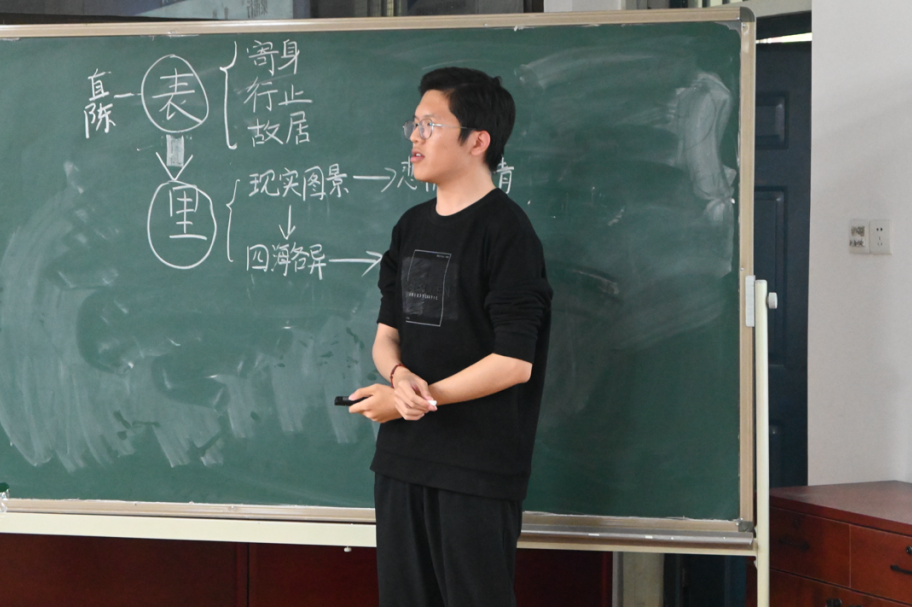 直陈
表
寄身
行止
故居
里
现实图景
四海各异